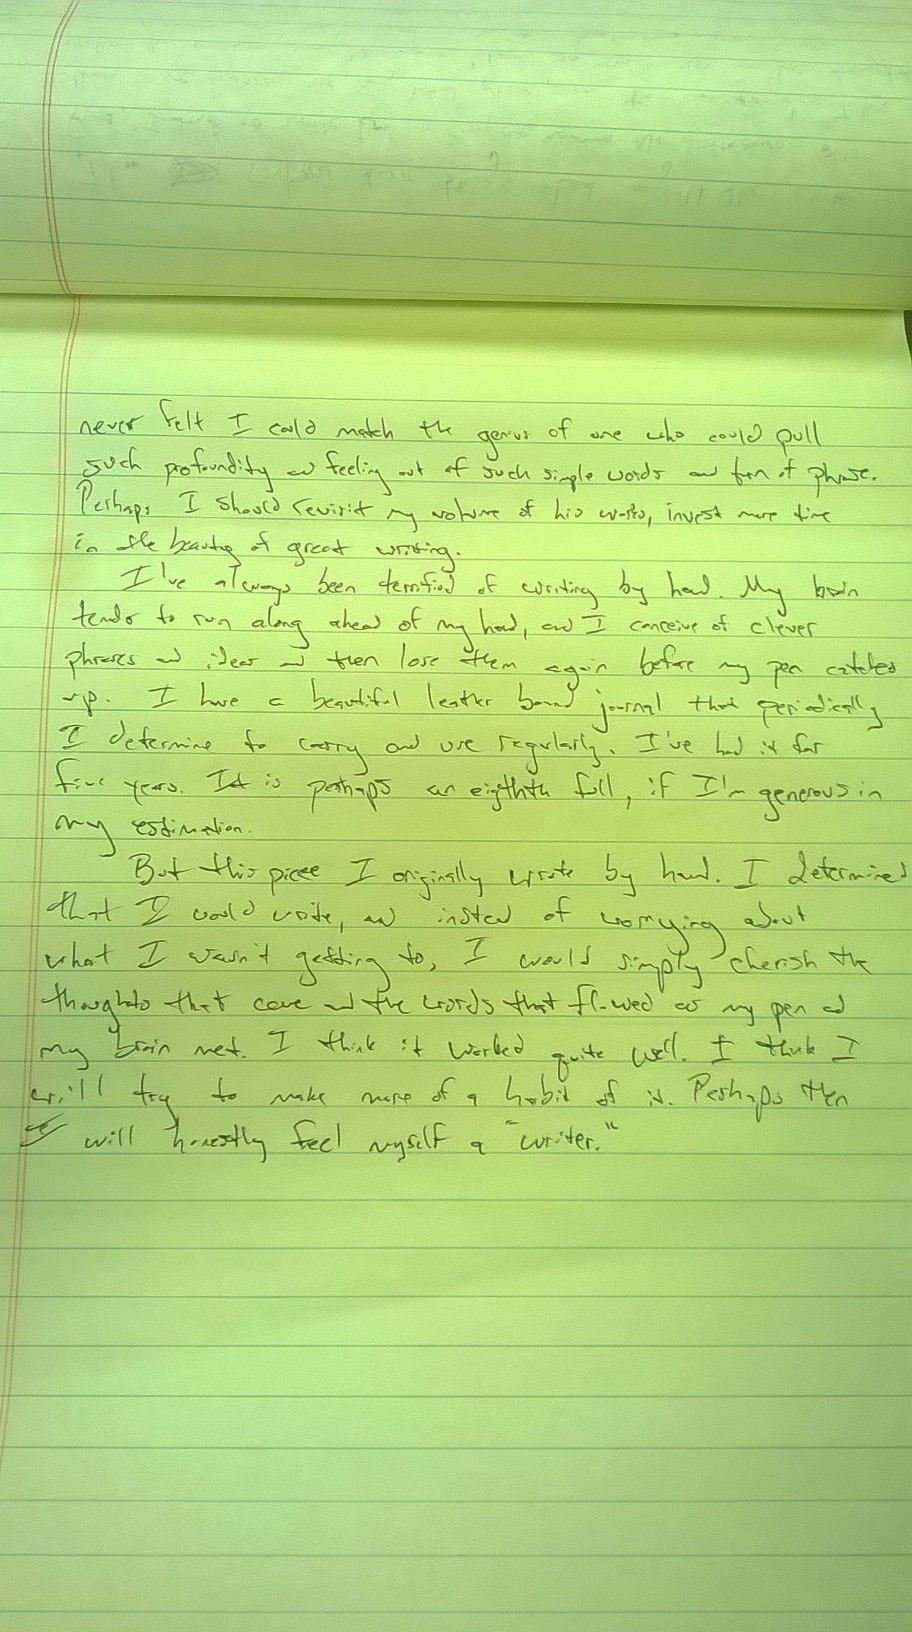 never felt I could match the genius of one who could pull
such profoundity and feeling out of such simple words and turn of phrase.
Perhaps I should revisit my volume of his works, invest more time
in the beauty of great writing.
I've always been terrified of writing by hand. My brain
tends to run along ahead of my hand, and I conceive of clever
phrases and ideas and then lose them again before my pen catches
up. I have a beautiful leather bound journal that periodically
I determine to carry and use regularly. I've had it for
five years. It is perhaps an eighth full, if I'm generous in
my estimation.
But this piece I originally wrote by hand. I determined
that I would write, and instead of worrying about
what I wasn't getting to, I would simply cherish the
thoughts that came and the words that flowed as my pen and
my brain met. I think it worked quite well. I think I
will try to make more of a habit of it. Perhaps then
I will honestly feel myself a "writer."